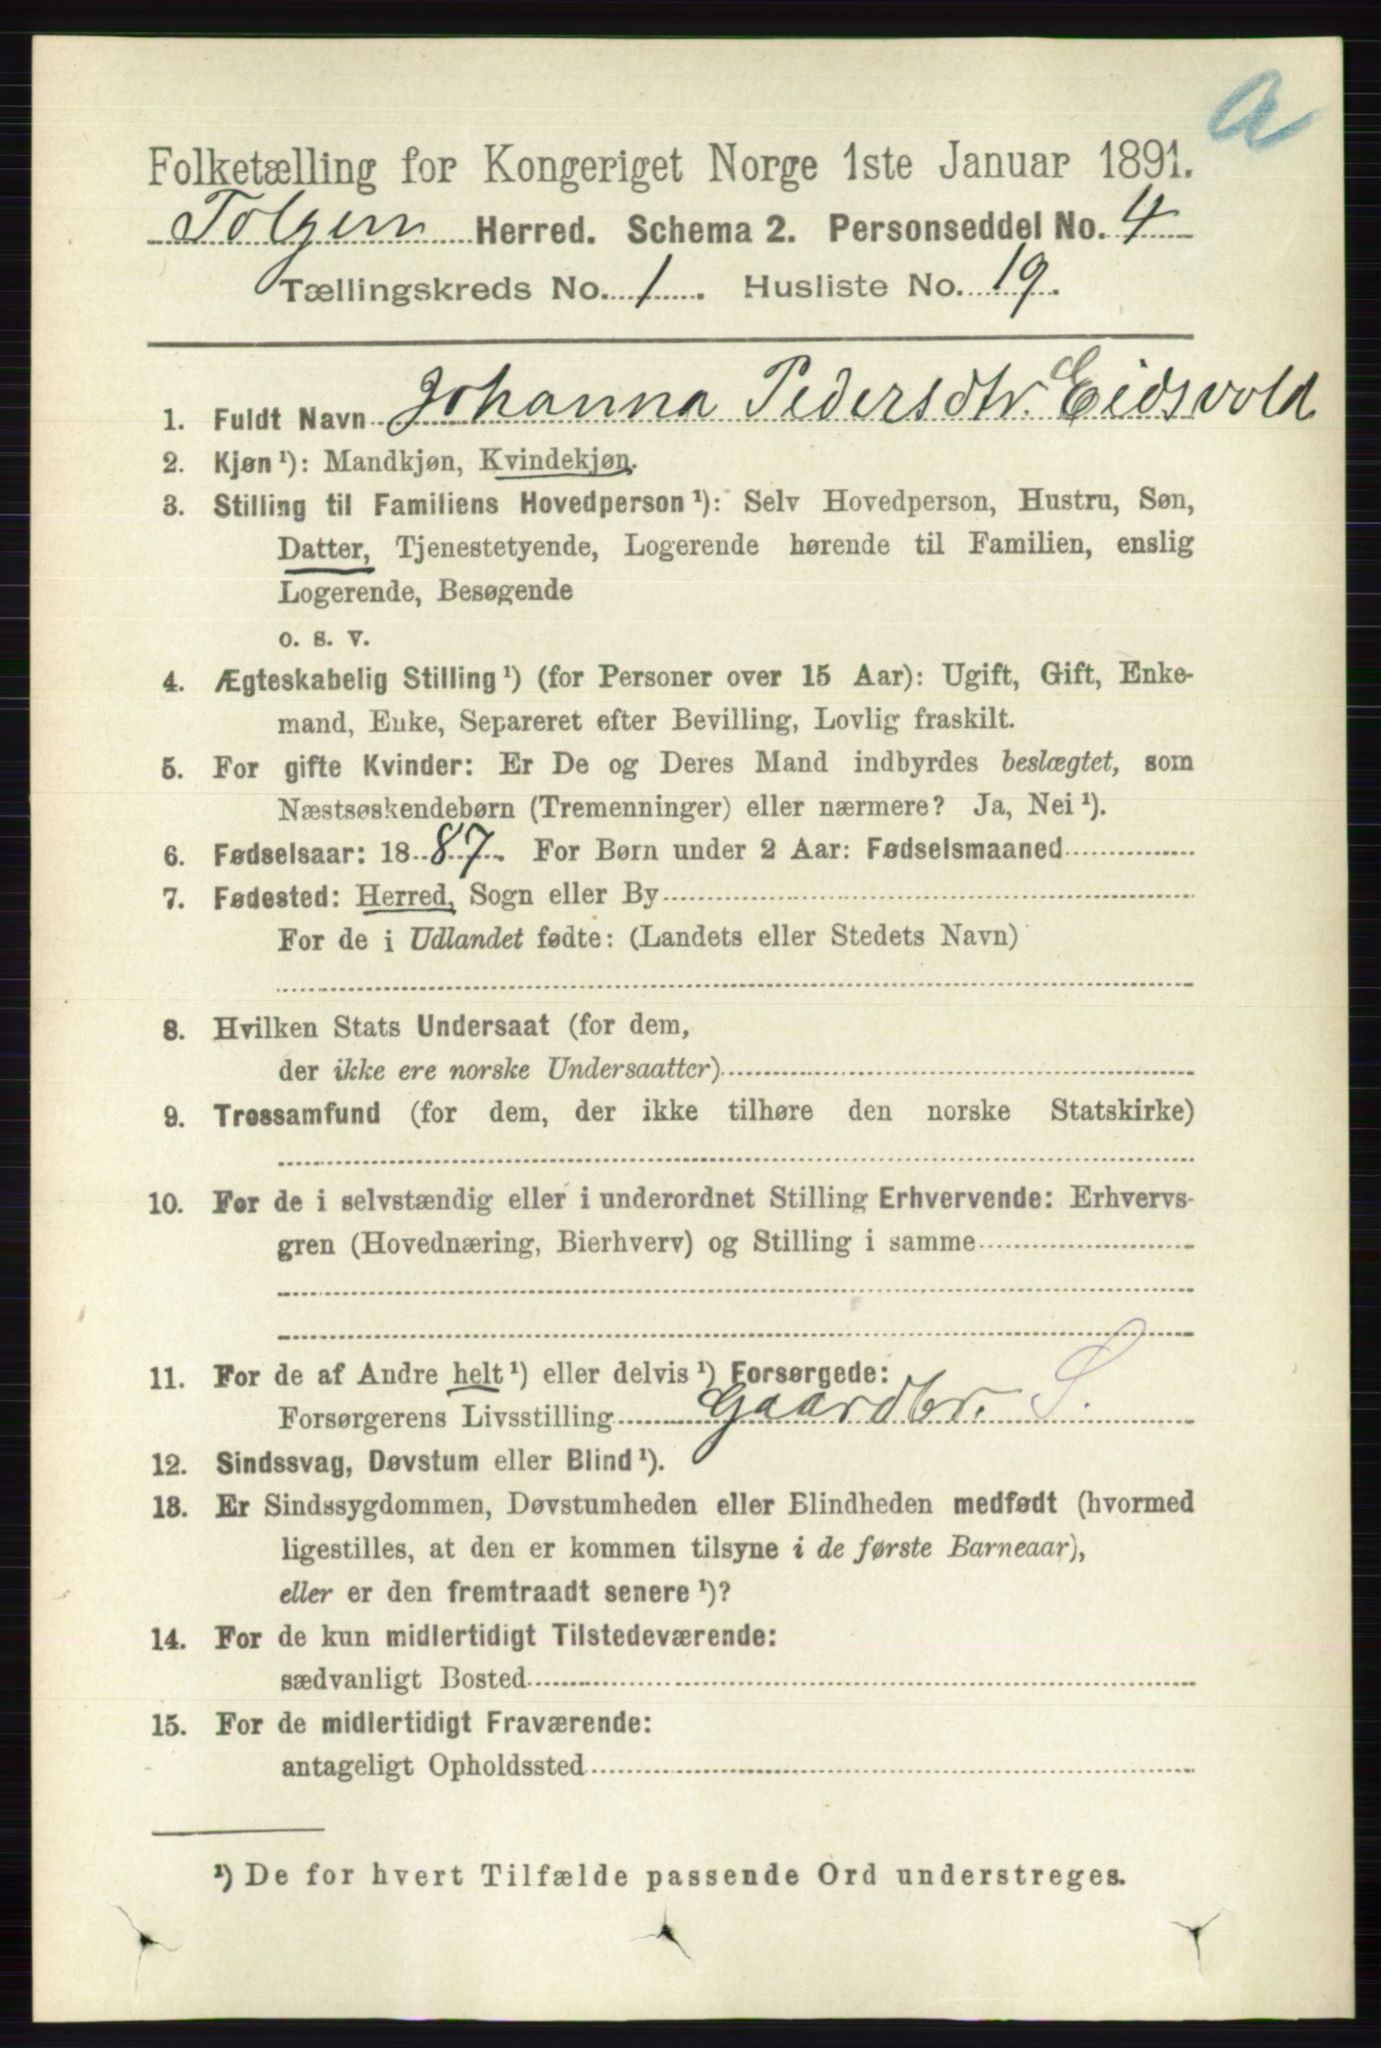 a
Folketælling for Kongeriget Norge 1ste Januar 1891.
Tolgen Herred. Schema 2. Personseddel No. 4
Tællingskreds No. 1. Husliste No. 19.
1. Fuldt Navn Johanna Pedersdtr. Eidsvold
2. Kjøn¹): Mandkjøn, Kvindekjøn.
3. Stilling til Familiens Hovedperson¹): Selv Hovedperson, Hustru, Søn,
Datter, Tjenestetyende, Logerende hørende til Familien, enslig
Logerende, Besøgende
o. s. v.
4. Ægteskabelig Stilling¹) (for Personer over 15 Aar): Ugift, Gift, Enke-
mand, Enke, Separeret efter Bevilling, Lovlig fraskilt.
5. For gifte Kvinder: Er De og Deres Mand indbyrdes beslægtet, som
Næstsøskendebørn (Tremenninger) eller nærmere? Ja, Nei¹).
6. Fødselsaar: 1887. For Børn under 2 Aar: Fødselsmaaned
7. Fødested: Herred, Sogn eller By
For de i Udlandet fødte: (Landets eller Stedets Navn)
8. Hvilken Stats Undersaat (for dem,
der ikke ere norske Undersaatter)
9. Trossamfund (for dem, der ikke tilhøre den norske Statskirke)
10. For de i selvstændig eller i underordnet Stilling Erhvervende: Erhvervs-
gren (Hovednæring, Bierhverv) og Stilling i samme
11. For de af Andre helt¹) eller delvis¹) Forsørgede:
Forsørgerens Livsstilling Gaardbr. S.
12. Sindssvag, Døvstum eller Blind¹).
13. Er Sindssygdommen, Døvstumheden eller Blindheden medfødt (hvormed
ligestilles, at den er kommen tilsyne i de første Barneaar),
eller er den fremtraadt senere¹)?
14. For de kun midlertidigt Tilstedeværende:
sædvanligt Bosted
15. For de midlertidigt Fraværende:
antageligt Opholdssted
¹) De for hvert Tilfælde passende Ord understreges.